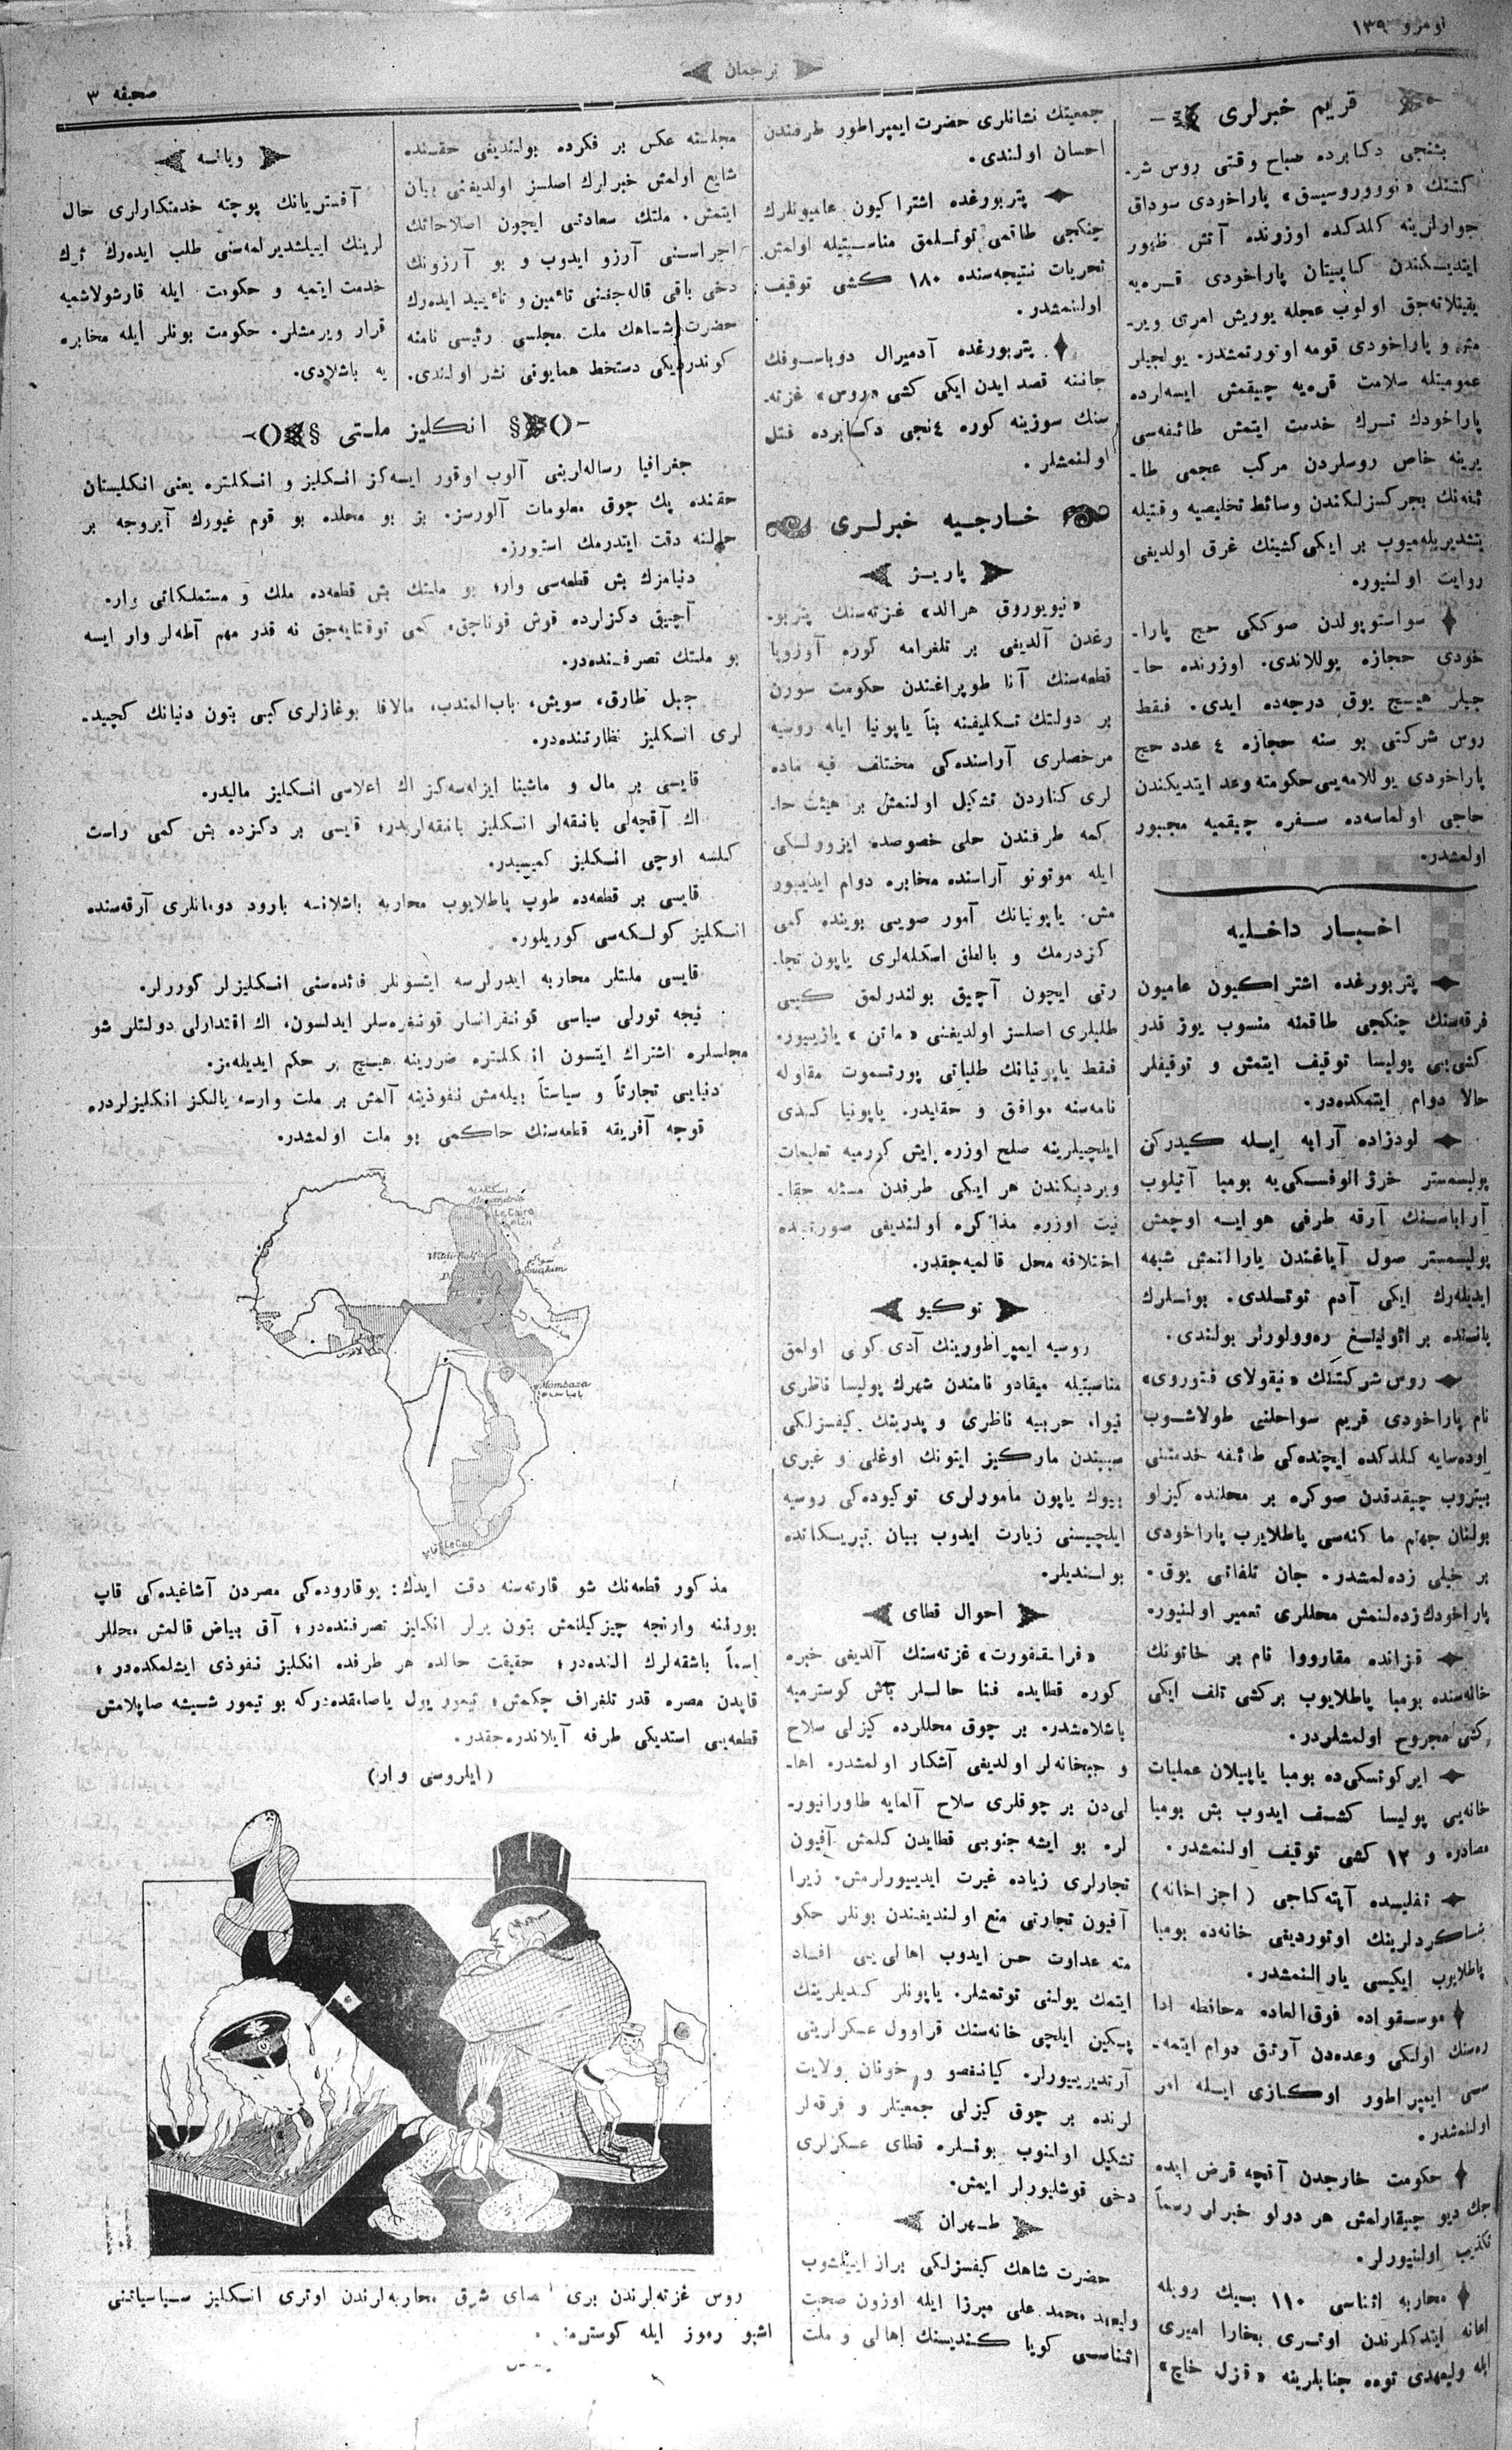 نومرو ١٣٩
ترجمان
صحيفه ٣
قريم خبرلرى
بشنجى دكابرده صباح وقتى روس شر-
كتنك «نووروسيسق» پاراخودى سوداق
جوارلرينه كلدكده اوزونده آتش ظهور
ايتديكندن كاپيتان پاراخودى قره‌يه
يقينلاته‌جق اولوب عجله يوريش امرى وير-
مش و پاراخودى قومه اوتورتمشدر. يولجيلر
عموميتله سلامت قره‌يه چيقمش ايسه‌لرده
پاراخودك ترك خدمت ايتمش طائفه‌سى
يرينه خاص روسلردن مركب عجمى طا-
ئفه‌نك بجركسزلكندن وسائط تخليصيه وقتيله
يتشديريله‌ميوب بر ايكى كشينك غرق اولديغى
روايت اولنيور.
سواستوپولدن صوككى حج پارا-
خودى حجازه يوللاندى. اوزرنده حا-
جيلر هيچ يوق درجه‌ده ايدى. فقط
روس شركتى بو سنه حجازه ٤ عدد حج
پاراخودى يوللامه‌يى حكومته وعد ايتديكندن
حاجى اولماسه‌ده سفره چيقميه مجبور
اولمشدر.
اخبار داخليه
پتربورغده اشتراكيون عاميون
فرقه‌سنك چنكجى طاقمنه منسوب يوز قدر
كشى‌يى پوليسا توقيف ايتمش و توقيفلر
حالا دوام ايتمكده‌در.
لودزاده آرابه ايله كيدركن
پوليسمستر خرژالوفسكى‌يه بومبا آتيلوب
آراباسنك آرقه طرفى هوايه اوچمش
پوليسمستر صول آياغندن يارالنمش شبهه
ايديله‌رك ايكى آدم توتلدى. بونلرك
ياننده براونينغ ره‌وولورلر بولندى.
روس شركتنك «نيقولاى فتوروى»
نام پاراخودى قريم سواحلنى طولاشوب
اوده‌سايه كلدكده ايچنده‌كى طائفه خدمتنى
بيتروب چيقدقدن صوكره بر محلنده كيزلو
بولنان جهنم ماكنه‌سى پاطلايوب پاراخودى
بر خيلى زده‌لمشدر. جان تلفاتى يوق.
پاراخودك زده‌لنمش محللرى تعمير اولنيور.
قزانده مقارووا نام بر خاتونك
خانه‌سنده بومبا پاطلايوب بر كشى تلف ايكى
كشى مجروح اولمشلردر.
ايركوتسكى‌ده بومبا ياپيلان عمليات
خانه‌يى پوليسا كشف ايدوب بش بومبا
مصادره و ١٢ كشى توقيف اولنمشدر.
تفليسده آپته‌كاجى (اجزاخانه)
شاكردلرينك اوتورديغى خانه‌ده بومبا
پاطلايوب ايكيسى يارالنمشدر.
موسقواده فوق‌العاده محافظه ادا
ره‌سنك اولكى وعده‌دن آوتق دوام ايتمه-
سى ايمپراطور اوكازى ايله امر
اولنمشدر.
حكومت خارجدن آقچه قرض ايده
جك ديو چيقارلمش هر دولو خبرلر رسماً
تكذيب اولنيورلر.
محاربه اثناسى ١١٠ بيك روبله
اعانه ايتدكلرندن اوترى بخارا اميرى
ايله وليعهدى توره جنابلرينه «قزل خاچ»
جمعيتك نشانلرى حضرت ايمپراطور طرفندن
احسان اولندى.
پتربورغده اشتراكيون عاميونلرك
چنكجى طاقمى توتلمق مناسبتيله اولمش
تحريات نتيجه‌سنده ١٨٠ كشى توقيف
اولنمشدر.
پتربورغده آدميرال دوباسوفك
جاننه قصد ايدن ايكى كشى «روس» غزته-
سنك سوزينه كوره ٤نجى دكابرده قتل
اولنمشلر.
خارجيه خبرلرى
پاريز
«نيويوروق هرالد» غزته‌سنك پتربو-
رغدن آلديغى بر تلغرامه كوره آوروپا
قطعه‌سنك آنا طوپراغندن حكومت سورن
بر دولتك تكليفنه بناً ياپونيا ايله روسيه
مرخصلرى آراسنده‌كى مختلف فيه ماده
لرى كناردن تشكيل اولنمش بر هيئت حا-
كمه طرفندن حلى خصوصده ايزوولسكى
ايله موتونو آراسنده مخابره دوام ايدييور
مش. ياپونيانك آمور صويى بوينده كمى
كزدرمك و بالغان اسكله‌لرى ياپون تجا-
رتى ايچون آچيق بولندرلمق كبى
طلبلرى اصلسز اولديغنى «ماتن» يازييور.
فقط ياپونيانك طلباتى پورتسموت مقاوله
نامه‌سنه موافق و حقليدر. ياپونيا كندى
ايلچيلرينه صلح اوزره ايش كورميه تعليمات
ويرديكندن هر ايكى طرفدن مسئله حقا-
نيت اوزره مذاكره اولنديغى صورتده
اختلافه محل قالميه‌جقدر.
توكيو
روسيه ايمپراطورينك آدى كونى اولمق
مناسبتيله ميقادو نامندن شهرك پوليسا ناظرى
نيوا، حربيه ناظرى و پدرينك كيفسزلكى
سببندن ماركيز ايتونك اوغلى و غيرى
بيوك ياپون مأمورلرى توكيوده‌كى روسيه
ايلچيسنى زيارت ايدوب بيان تبريكاتده
بولنديلر.
احوال قطاى
«فرانقفورت» غزته‌سنك آلديغى خبره
كوره قطايده فنا حاللر باش كوسترميه
باشلامشدر. بر چوق محللرده كيزلى سلاح
و جبخانه‌لر اولديغى آشكار اولمشدر. اها-
لى‌دن بر چوقلرى سلاح آلمايه طاورانيور-
لر. بو ايشه جنوبى قطايدن كلمش آفيون
تجارلرى زياده غيرت ايدييورلرمش. زيرا
آفيون تجارتى منع اولنديغندن بونلر حكو
مته عداوت حس ايدوب اهالى‌يى افساد
ايتمك يولنى توتمشلر. ياپونلر كنديلرينك
پكين ايلچى خانه‌سنك قراوول عسكرلرينى
آرتديرييورلر. كيانغصو و خونان ولايت
لرنده بر چوق كيزلى جمعيتلر و فرقه‌لر
تشكيل اولنوب بونلره قطاى عسكرلرى
دخى قوشليورلر ايمش.
طهران
حضرت شاهك كيفسزلكى براز اييلشوب
وليعهد محمد على ميرزا ايله اوزون صحبت
اثناسى كويا كندينك اهالى و ملت
مجلسنه عكس بر فكرده بولنديغى حقنده
شايع اولمش خبرلرك اصلسز اولديغنى بيان
ايتمش. ملتك سعادتى ايچون اصلاحاتك
اجراسنى آرزو ايدوب و بو آرزونك
دخى باقى قاله‌جغنى تأمين و تأييد ايده‌رك
حضرت شاهك ملت مجلسى رئيسى نامنه
كوندرديكى دستخط همايونى نشر اولندى.
ويانه
آفستريانك پوچته خدمتكارلرى حال
لرينك اييلشديرلمه‌سنى طلب ايده‌رك ترك
خدمت ايتميه و حكومت ايله قارشولاشميه
قرار ويرمشلر. حكومت بونلر ايله مخابره
يه باشلادى.
انكليز ملتى
جغرافيا رساله‌لرينى آلوب اوقور ايسه‌كز انكليز و انكلتره يعنى انكليستان
حقنده پك چوق معلومات آلورسز. بز بو محلده بو قوم غيورك آيروجه بر
حالنه دقت ايتدرمك استيورز.
دنيامزك بش قطعه‌سى وار؛ بو ملتك بش قطعه‌ده ملك و مستملكاتى وار.
آچيق دكزلرده قوش قوناجق، كمى توقتايه‌جق نه قدر مهم آطه‌لر وار ايسه
بو ملتك تصرفنده‌در.
جبل طارق، سويش، باب‌المندب، مالاقا بوغازلرى كبى بتون دنيانك كچيد-
لرى انكليز نظارتنده‌در.
قايسى بر مال و ماشينا ايزله‌سه‌كز اك اعلاسى انكليز ماليدر.
اك آقچه‌لى بانقه‌لر انكليز بانقه‌لريدر؛ قايسى بر دكزده بش كمى راست
كلسه اوچى انكليز كميسيدر.
قايسى بر قطعه‌ده طوپ پاطلايوب محاربه باشلانسه بارود دومانلرى آرقه‌سنده
انكليز كولكه‌سى كوريلور.
قايسى ملتلر محاربه ايدرلرسه ايتسونلر فائده‌سنى انكليزلر كوررلر.
نيجه تورلى سياسى قونفرانسلر قونغره‌سلر ايدلسون، اك اقتدارلى دولتلر شو
مجلسلره اشتراك ايتسون انكلتره ضررينه هيچ بر حكم ايديله‌مز.
دنيايى تجارتاً و سياستاً بيله‌مش نفوذينه آلمش بر ملت وارسه يالكز انكليزلردر.
قوجه آفريقه قطعه‌سنك حاكمى بو ملت اولمشدر.
اسكندريه
Alexandrie
Le Caire
Wadi-Halfa
سواكن
Souakim
Mombaza
مومباسه
Le Cap
قاپ
مذكور قطعه‌نك شو قارته‌سنه دقت ايدك: يوقاروده‌كى مصردن آشاغيده‌كى قاپ
بورننه وارنجه چيزكيلنمش بتون يرلر انكليز تصرفنده‌در؛ آق بياض قالمش محللر
اسماً باشقه‌لرك النده‌در؛ حقيقت حالده هر طرفده انكليز نفوذى ايشلمكده‌در؛
قاپدن مصره قدر تلغراف چكمش؛ تيمور يول ياصامقده‌دركه بو تيمور شيشه صاپلامش
قطعه‌يى استديكى طرفه آيلاندره‌جقدر.
(ايلروسى وار)
روس غزته‌لرندن برى اقصاى شرق محاربه‌لرندن اوترى انكليز سياسياتنى
اشبو رموز ايله كوسترمش.